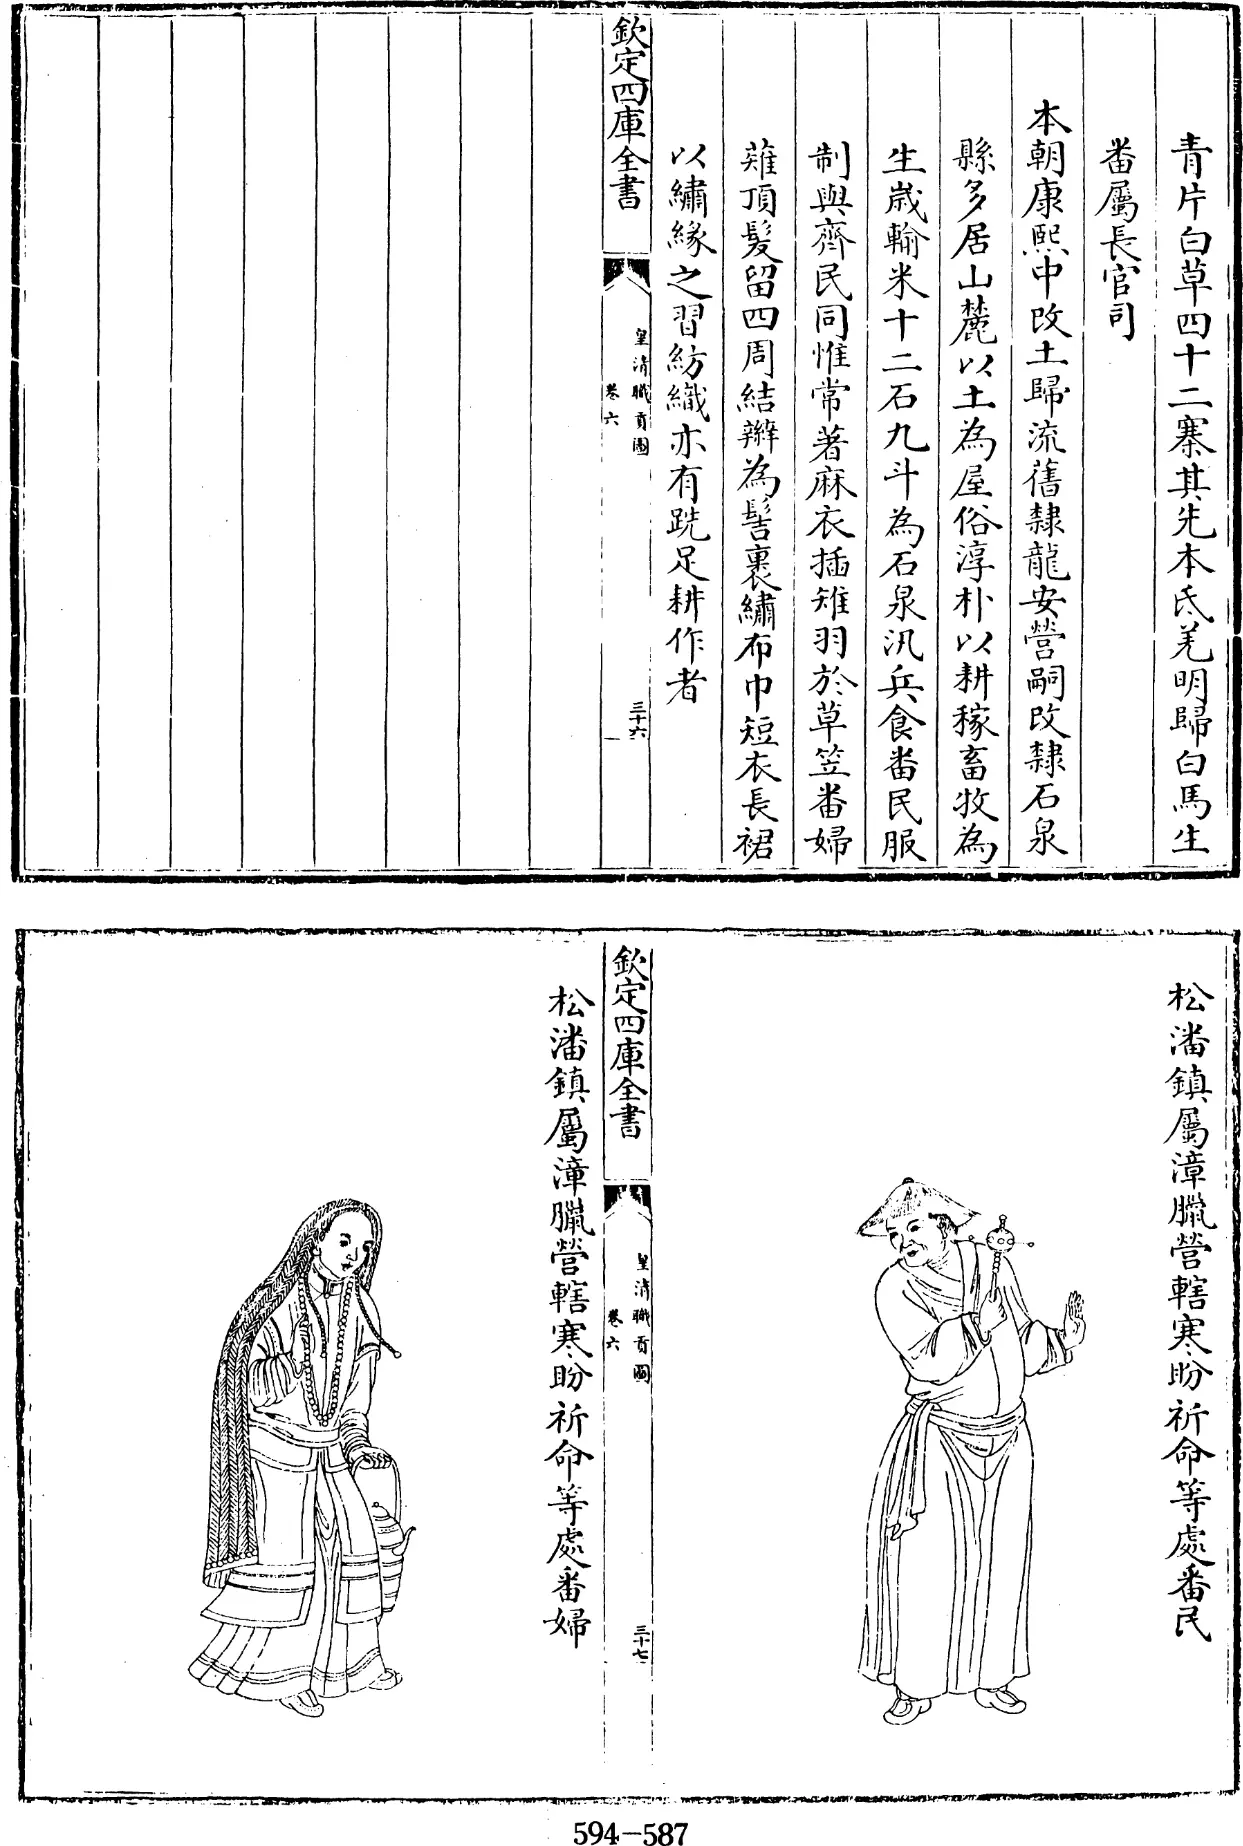 青片白草四十二寨其先本氐羌明歸白馬生
番屬長官司
本朝康熙中改土歸流舊隸龍安營嗣改隸石泉
縣多居山麓以土為屋俗淳朴以耕稼畜牧為
生歲輸米十二石九斗為石泉汛兵食番民服
制與齊民同惟常著麻衣插雉羽於草笠番婦
薙頂髮留四周結辮為髻裹繡布巾短衣長裙
以繡緣之習紡織亦有跣足耕作者
欽定四庫全書
皇清職貢圖
卷六
三十六
松潘鎮屬漳臘營轄寒盼祈命等處番民
欽定四庫全書
皇清職貢圖
卷六
三十七
松潘鎮屬漳臘營轄寒盼祈命等處番婦
594-587